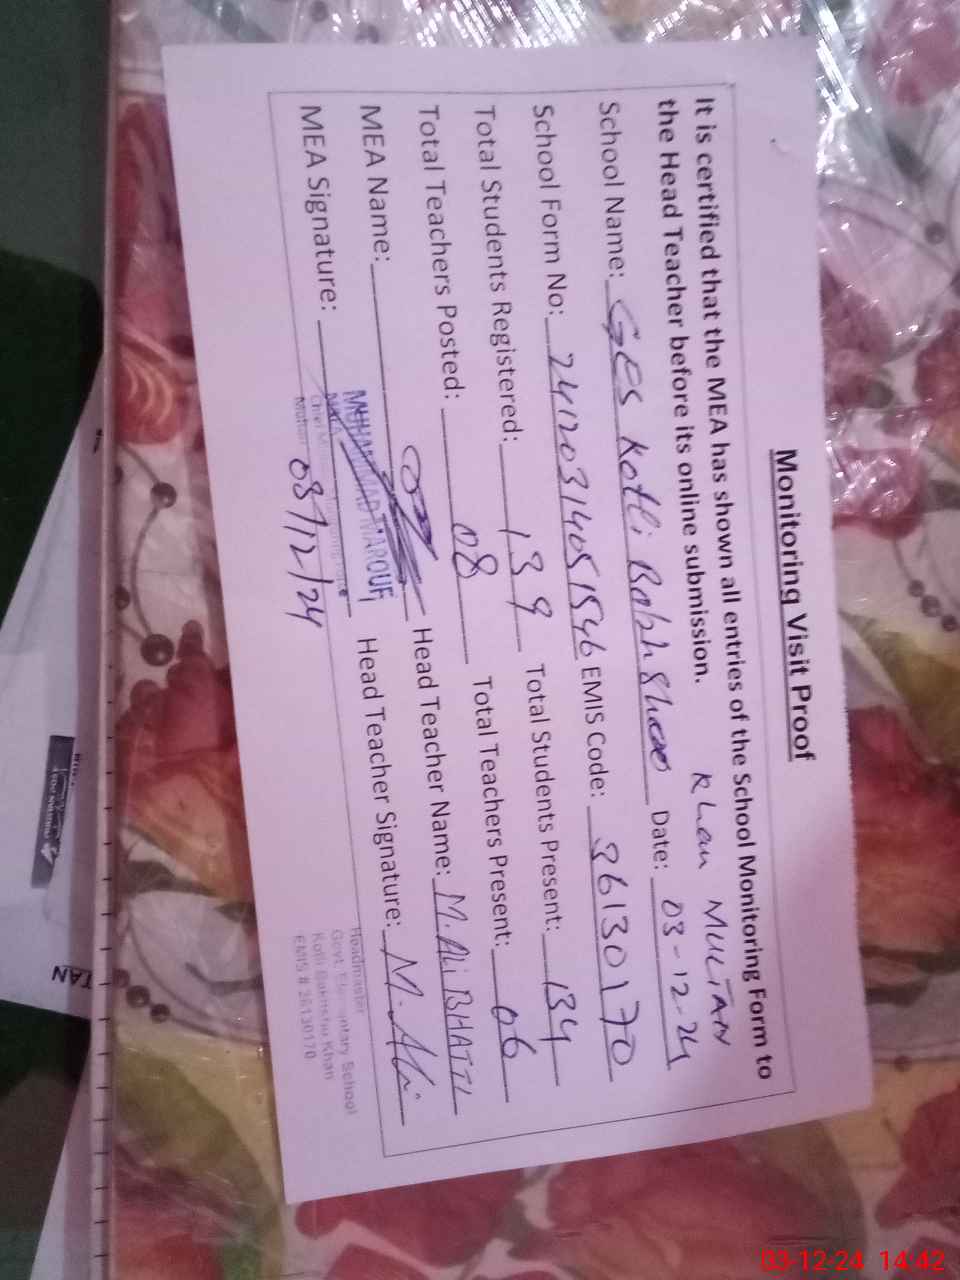 Monitoring Visit Proof
It is certified that the MEA has shown all entries of the School Monitoring Form to
the Head Teacher before its online submission. Khan MULTAN
School Name: GES Kotli Bakhshoo Date: 03-12-24
School Form No: 24120314051546 EMIS Code: 36130170
Total Students Registered: 139 Total Students Present: 134
Total Teachers Posted: 08 Total Teachers Present: 06
MEA Name: Head Teacher Name: M.Ali BHATTI
MEA Signature: MUHAMMAD MAROUF Head Teacher Signature: M.Ali
MEA
03/12/24
Headmaster
Govt. Elementary School
Kotli Bakhshu Khan
EMIS # 36130170
TAN
03-12-24 14:42